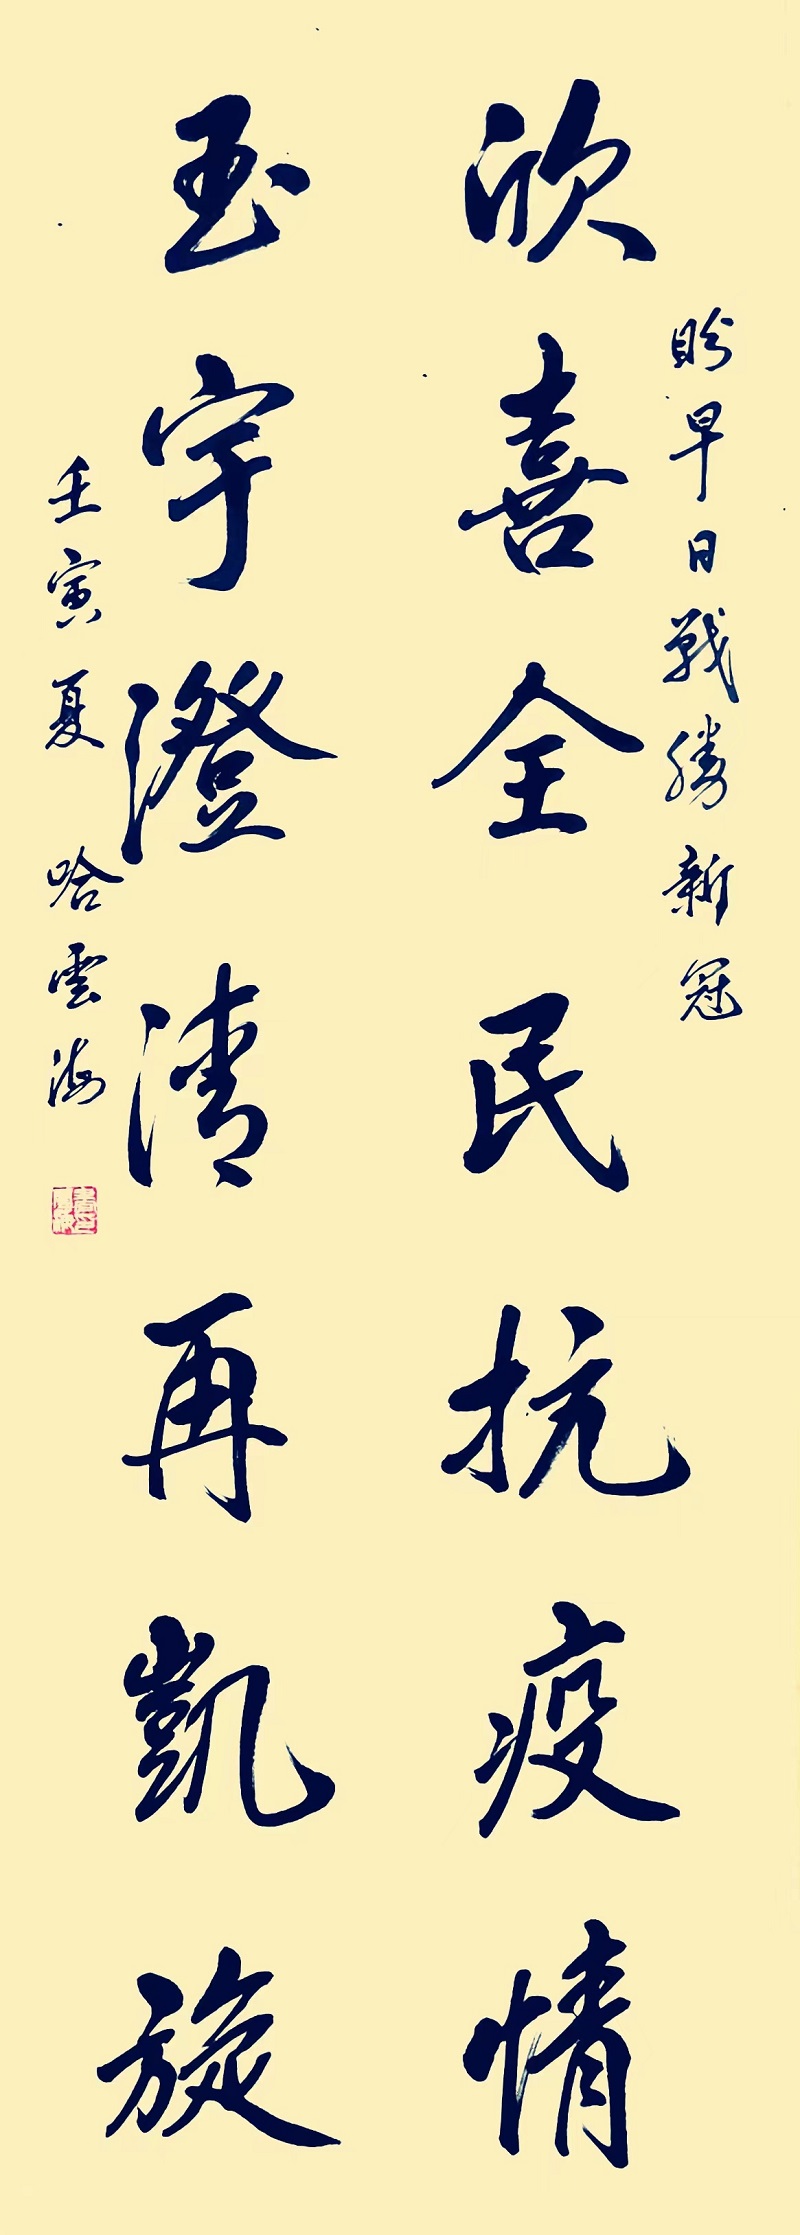 盼早日戰勝新冠
欣喜全民抗疫情
玉宇澄清再凱旋
壬寅夏 哈雲海